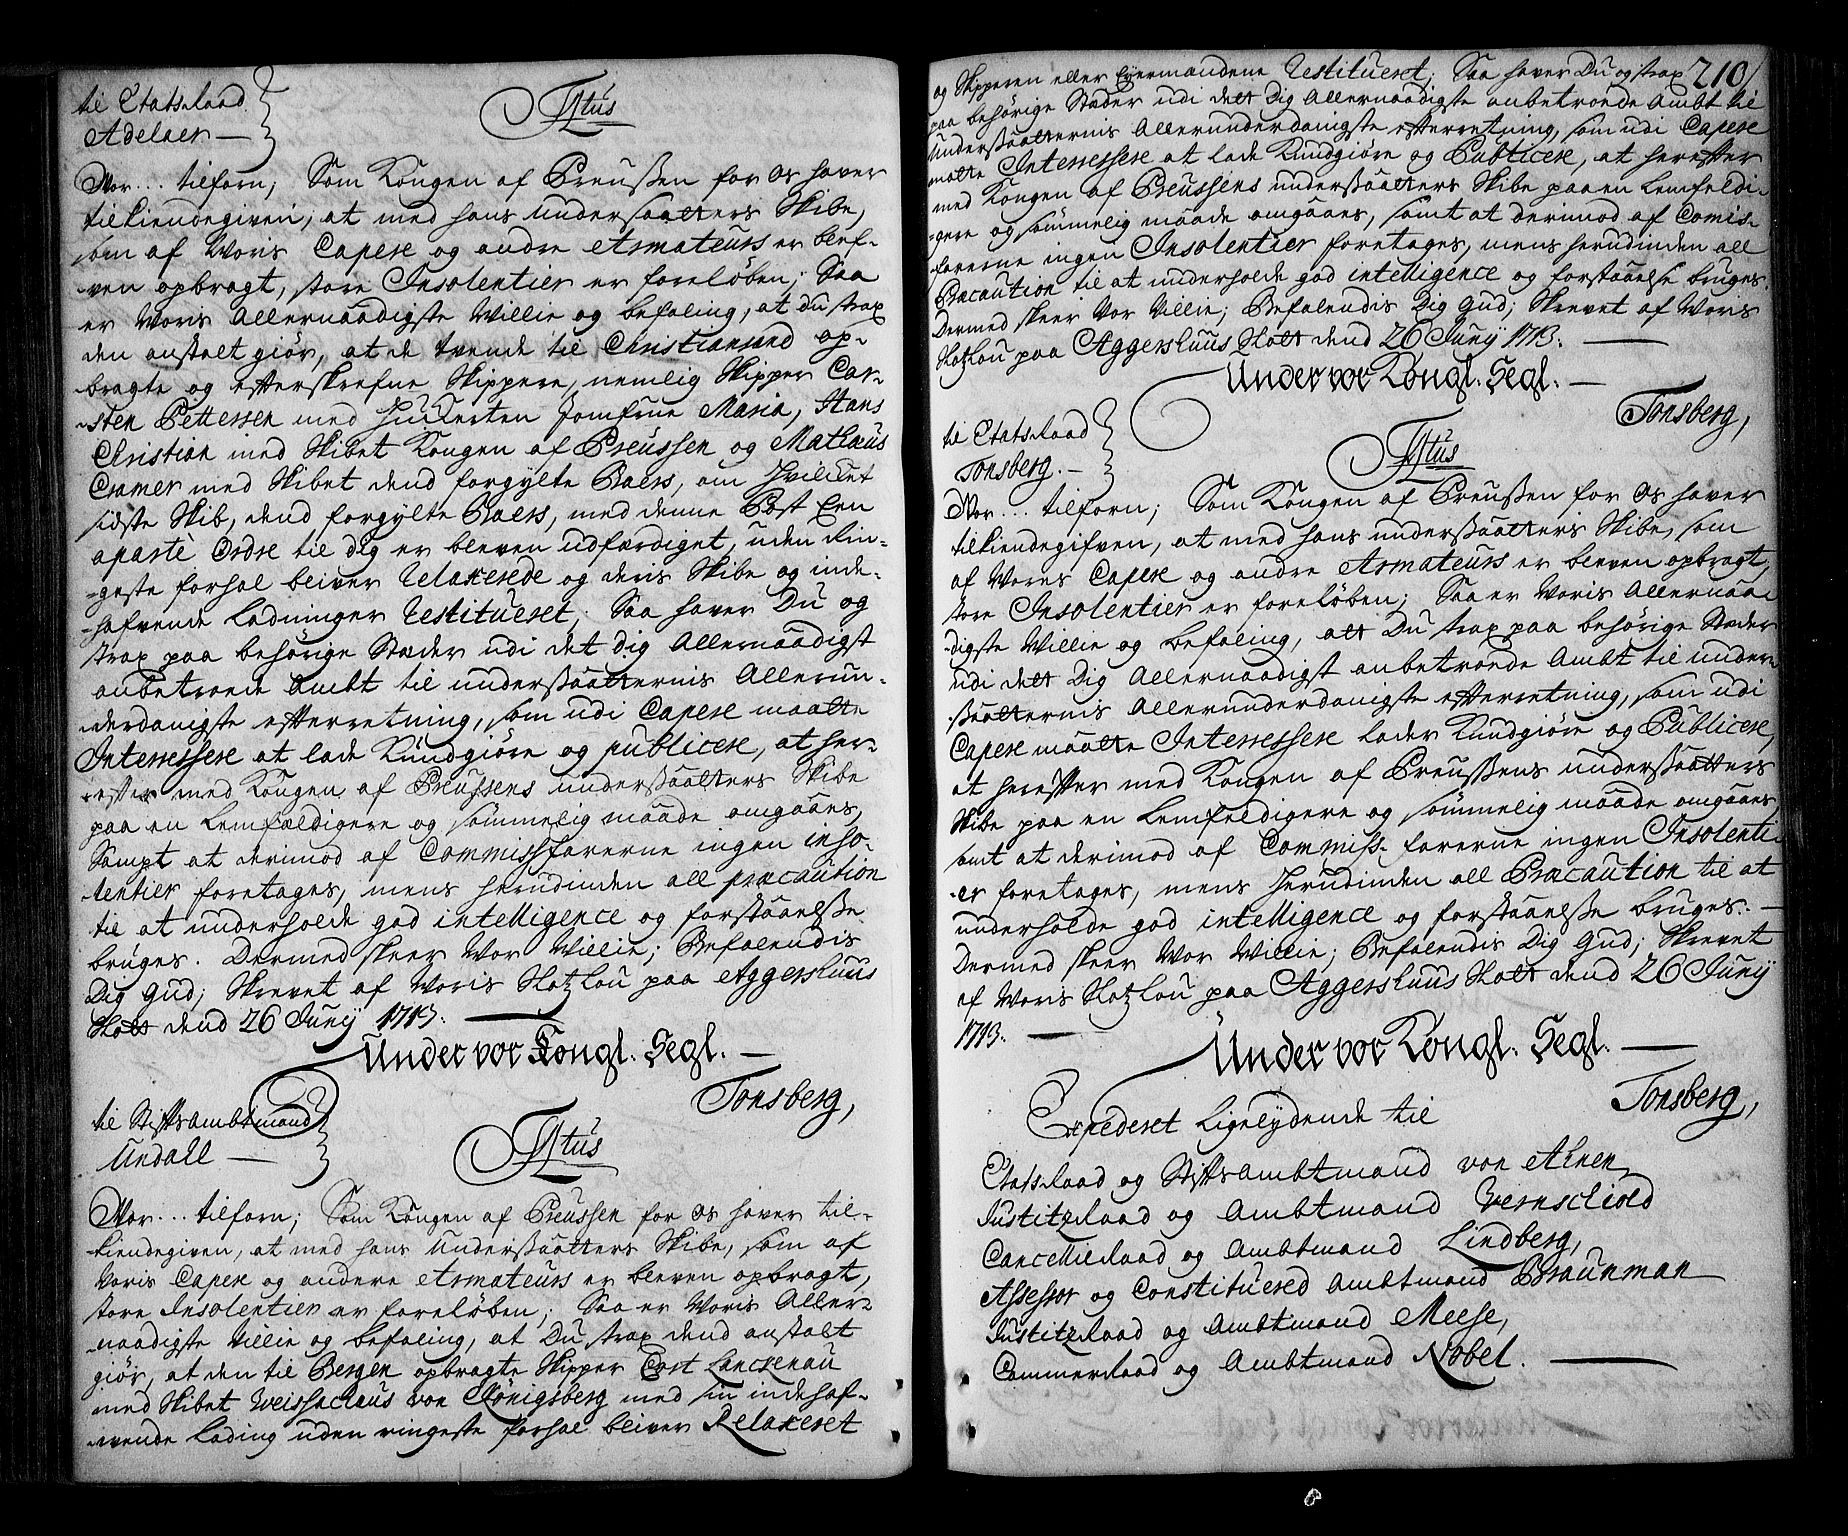 til EtatsRaad
Adelaer —
Titus
Vor... tilforn; Som Kongen af Preussen for os haver
tilkiendegiven, at med hans undersaatters Skibe,
som af Voris Capere og andre Armateurs er blef-
ven opbragt, store Insolentier er foreløben; Saa
er Voris Allernaadigste Villie og befaling, at Du strax
den anstalt giør, at de tvende til Christiansund op-
bragte og efterskrefne Skippere, nemlig Skipper Car-
sten Pettersen med Huckerten Jomfrue Maria, Hans
Christian med Skibet Kongen af Preussen og Mathæus
Cramer med Skibet dend forgylte Baers, om hvilcket
sidste Skib, dend forgylte Baers, med denne Post Een
aparte Ordre til dig er bleven udfærdiget, uden Rin-
geste forhal bliver Relaxerede og deris Skibe og inde-
hafvende Ladninger Restitueret; Saa haver Du og
strax paa behørige Stæder udi det Dig Allernaadigst
anbetroede Ambt til undersaatternis Allerun-
derdanigste efterretning, som udi Capere maatte
Interressere at lade Kundgiøre og publicere, at her-
efter med Kongen af Preussens undersaatters Skibe
paa en Lemfældigere og sømmelig maade omgaaes,
Sampt at derimod af Commissfarerne ingen inso-
lentier foretages, mens herudinden all præcaution
til at underholde god intelligence og forstaaelse
bruges. Dermed skeer Vor Villie; Befalendis
Dig Gud; Skrevet af Voris Slotzlou paa Aggershuus
Slott dend 26 Juny 1713.
Under vor Kongl. Segl. —
Tonsberg,
til Stiftsambtmand
Undall —
Titus
Vor... tilforn; Som Kongen af Preussen for os haver til-
kiendegiven, at med hans Undersaatters Skibe, som af
Voris Capere og andere Armateurs er bleven opbragt,
store Insolentier er foreløben; Saa er Voris Aller-
naadigste Villie og befaling, at Du strax dend anstalt
giør, at den til Bergen opbragte Skipper Cort Lanckenau
med Skibet Weissaclaus von Königsberg med sin indehaf-
vende Lading uden ringeste forhal bliver Relaxeret
210/
og Skipperen eller Eyermandene Restitueret; Saa haver Du og strax
paa behørige Stæder udi dett Dig Allernaadigste anbetroede Ambt til
Undersaatternis Allerunderdanigste efterretning, som udi Capere
maatte Interressere at lade Kundgiøre og Publicere, at herefter
med Kongen af Preussens undersaatters Skibe paa en Lemfeldi-
gere og sømmelig maade omgaaes, samt at derimod af Comis-
farerne ingen Insolentier foretages, mens herudinden all
Præcaution til at underholde god intelligence og forstaaelse bruges.
Dermed skeer Vor Villie; Befalendis Dig Gud; Skrevet af Voris
Slotzlou paa Aggershuus Slott dend 26 Juny 1713. —
Under vor Kongl. Segl. —
Tonsberg,
til EtatsRaad
Tonsberg. —
Titus
Vor... tilforn; Som Kongen af Preussen for os haver
tilkiendegifven, at med hans undersaatteris Skibe, som
af Vores Capere og andre Armateurs er bleven opbragt,
store Insolentier er foreløben; Saa er Voris Allernaa-
digste Villie og befaling, att Du strax paa behørige Stæder
udi dett Dig Allernaadigst anbetroede Ambt til under-
saatternis Allerunderdanigste efterretning, som udi
Capere maatte Interressere lader Kundgiøre og Publicere,
at herefter med Kongen af Preussens undersaatters
Skibe paa en Lemfeldigere og sømmelig maade omgaaes,
samt at derimod af Commiss-farerne ingen Insolenti-
er foretages, mens herudinden all Præcaution til at
underholde god intelligence og forstaaelse bruges. —
Dermed skeer Vor Villie; Befalendis Dig Gud; Skrevet
af Voris Slotzlou paa Aggershuus Slott dend 26 Juny
1713. —
Under vor Kongl. Segl. —
Tonsberg,
Expederet Ligelydende til
EtatsRaad og Stiftsambtmand von Ahnen
JustitzRaad og Ambtmand Vernschiold
CancellieRaad og Ambtmand Lindberg,
Assessor og Constituered Ambtmand Braunman
JustitzRaad og Ambtmand Meese,
CommerRaad og Ambtmand Nobel. —